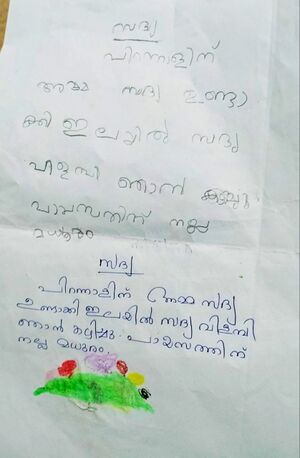 സദ്യ
പിറന്നാളിന്
അമ്മ സദ്യ ഉണ്ടാ
ക്കി ഇലയിൽ സദ്യ
വിളമ്പി ഞാൻ കഴിച്ചു
പായസത്തിന് നല്ല
മധുരം
സദ്യ
പിറന്നാളിന് അമ്മ സദ്യ
ഉണ്ടാക്കി ഇലയിൽ സദ്യ വിളമ്പി
ഞാൻ കഴിച്ചു. പായസത്തിന്
നല്ല മധുരം.